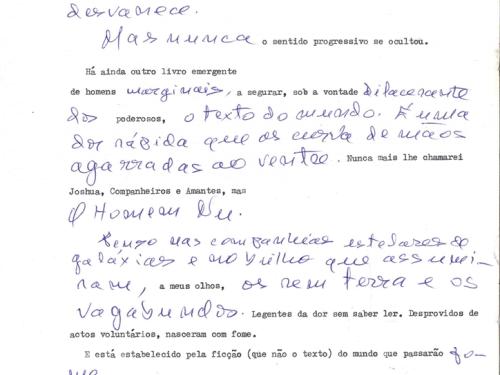 desvanece.
Mas nunca o sentido progressivo se ocultou.
Há ainda outro livro emergente
de homens marginais, a segurar, sob a vontade dilacerante
dos poderosos, o texto do mundo. É uma
dor rápida que os curva de mãos
agarradas ao ventre. Nunca mais lhe chamarei
Joshua, Companheiros e Amantes, mas
O Homem Nu.
Penso nas companhias estelares de
galáxias e no brilho que assumi-
ram, a meus olhos, os sem terra e os
vagabundos. Legentes da dor sem saber ler. Desprovidos de
actos voluntários, nasceram com fome.
E está estabelecido pela ficção (que não o texto) do mundo que passarão fo-